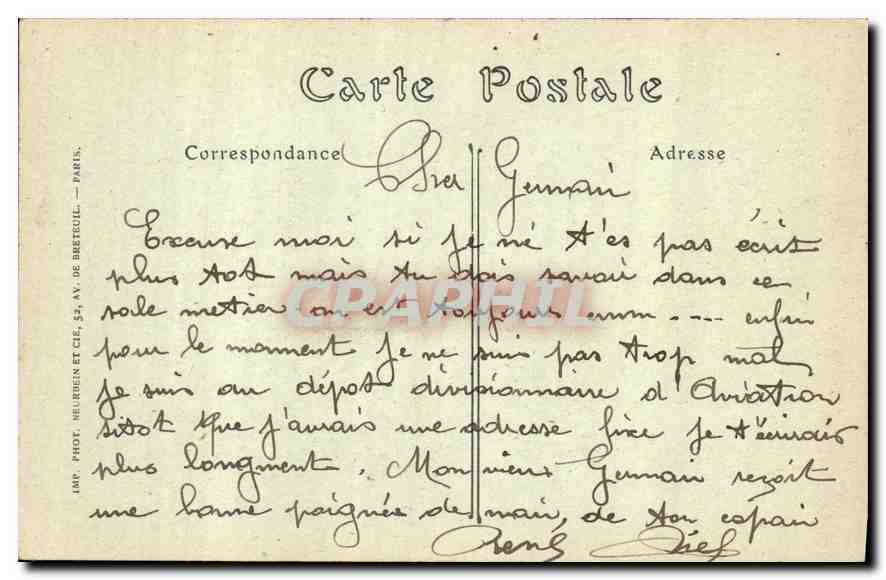 Carte Postale
Correspondance
Adresse
Cher Germain
Excuse moi si je né t'es pas écrit
plus tot mais tu dois savoir dans ce
sale metier on est toujours emm.... enfin
pour le moment je ne suis pas trop mal
je suis au dépot divisionnaire d'Aviation
sitot que j'aurais une adresse fixe je t'écrirais
plus longment. Mon vieux Germain reçoit
une bonne poignée de main, de ton copain
René
IMP. PHOT. NEURDEIN ET CIE, 52, AV. DE BRETEUIL. — PARIS.
CPAPHIL